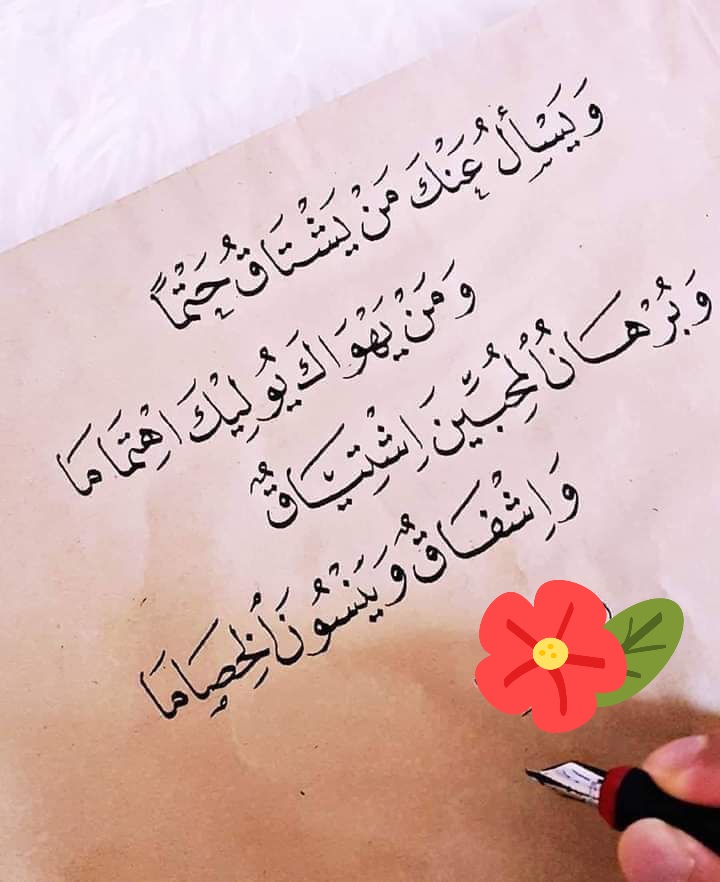 وَيَسْأَلُ عَنْكَ مَنْ يَشْتَاقُ حَتْمًا
وَمَنْ يَهْوَاكَ يُولِيكَ اهْتِمَامَا
وَبُرْهَانُ الْمُحِبِّينَ اشْتِيَاقٌ
وَإِشْفَاقٌ وَيَنْسُونَ الْخِصَامَا